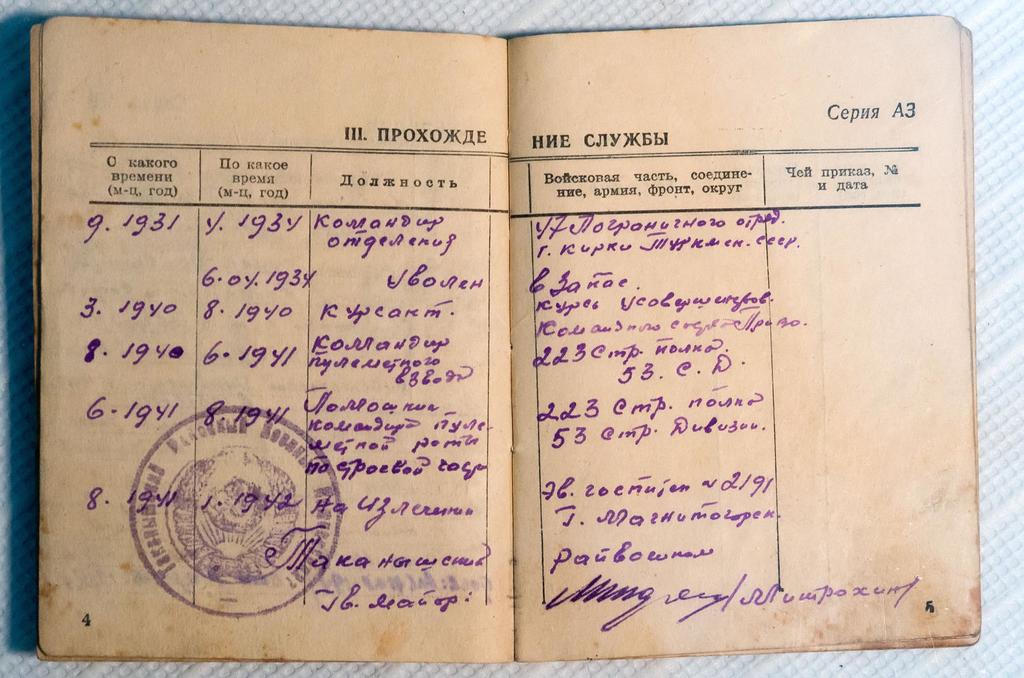 III. ПРОХОЖДЕНИЕ СЛУЖБЫ
Серия АЗ
С какого времени (м-ц, год)
По какое время (м-ц, год)
Должность
Войсковая часть, соединение, армия, фронт, округ
Чей приказ, № и дата
9. 1931 4. 1934 Командир 47 Пограничного отряд.
отделения г. Керки Туркмен. сср.
6.04.1934 уволен в Запас.
3. 1940 8. 1940 Курсант. Курсы усовершенств.
Командного состава Приво.
8. 1940 6. 1941 Командир 223 Стр. полка
пулеметного 53. С. Д.
взвода
6. 1941 8. 1941 Помошник 223 Стр. полка
командира пуле- 53 Стр. Дивизии.
метной роты
по строевой части
8. 1941 1. 1942 На излечении Эв. госпитал №2191
г. Магнитогорск
Таканышский райвоенком
Майор: /Митрохин/
4
5